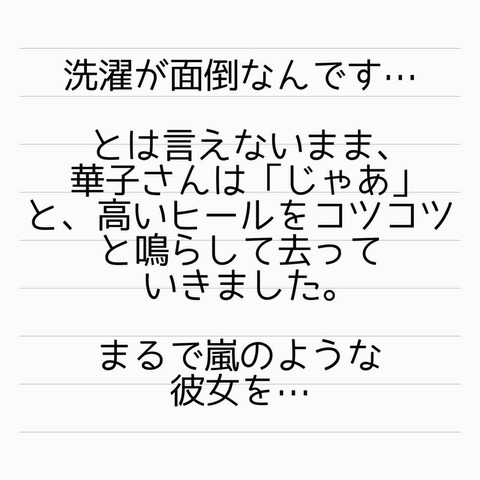 洗濯が面倒なんです…
とは言えないまま、
華子さんは「じゃあ」
と、高いヒールをコツコツ
と鳴らして去って
いきました。
まるで嵐のような
彼女を…